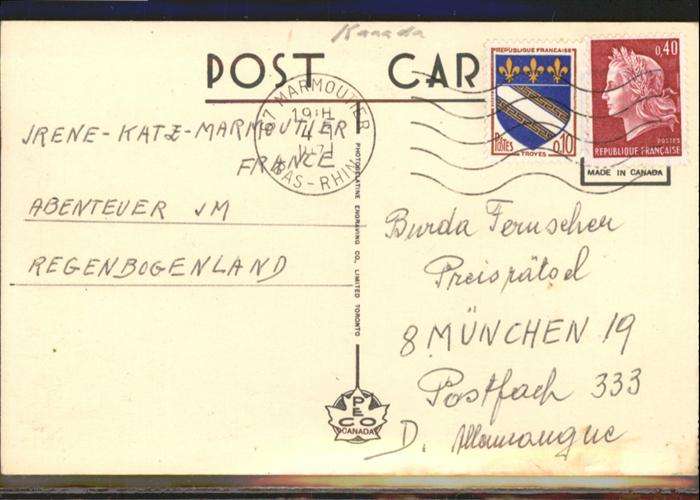 Kanada
POST CAR
67 MARMOUTIER
19H
4
1971
BAS-RHIN
REPUBLIQUE FRANCAISE
Postes 0,10
TROYES
0,40
POSTES
REPUBLIQUE FRANÇAISE
MADE IN CANADA
IRENE-KATZ-MARMOUTIER
FRANCE
ABENTEUER JM
REGENBOGENLAND
PHOTOGELATINE ENGRAVING CO. LIMITED TORONTO
PECO
CANADA
Burda Fernseher
Preisrätsel
8 MÜNCHEN 19
Postfach 333
D. Allemangue